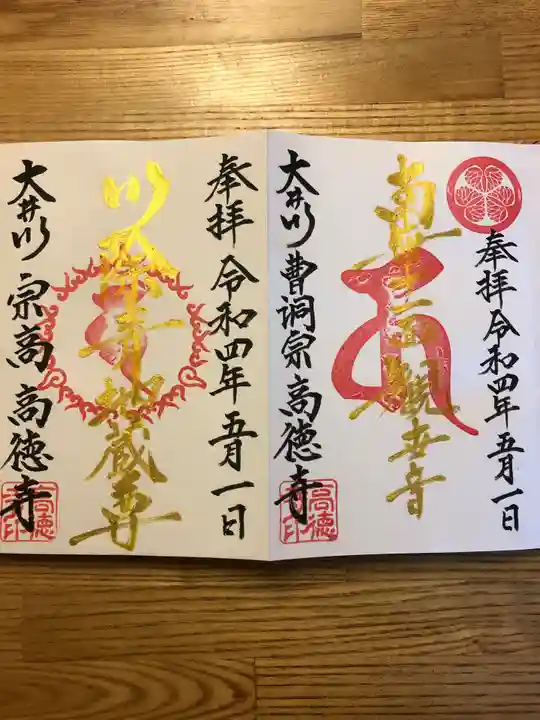 奉拝 令和四年五月一日
十一面観世音
大井川 曹洞宗 高徳寺
高徳寺印
奉拝 令和四年五月一日
地蔵尊
大井川 宗高 高徳寺
高徳寺印